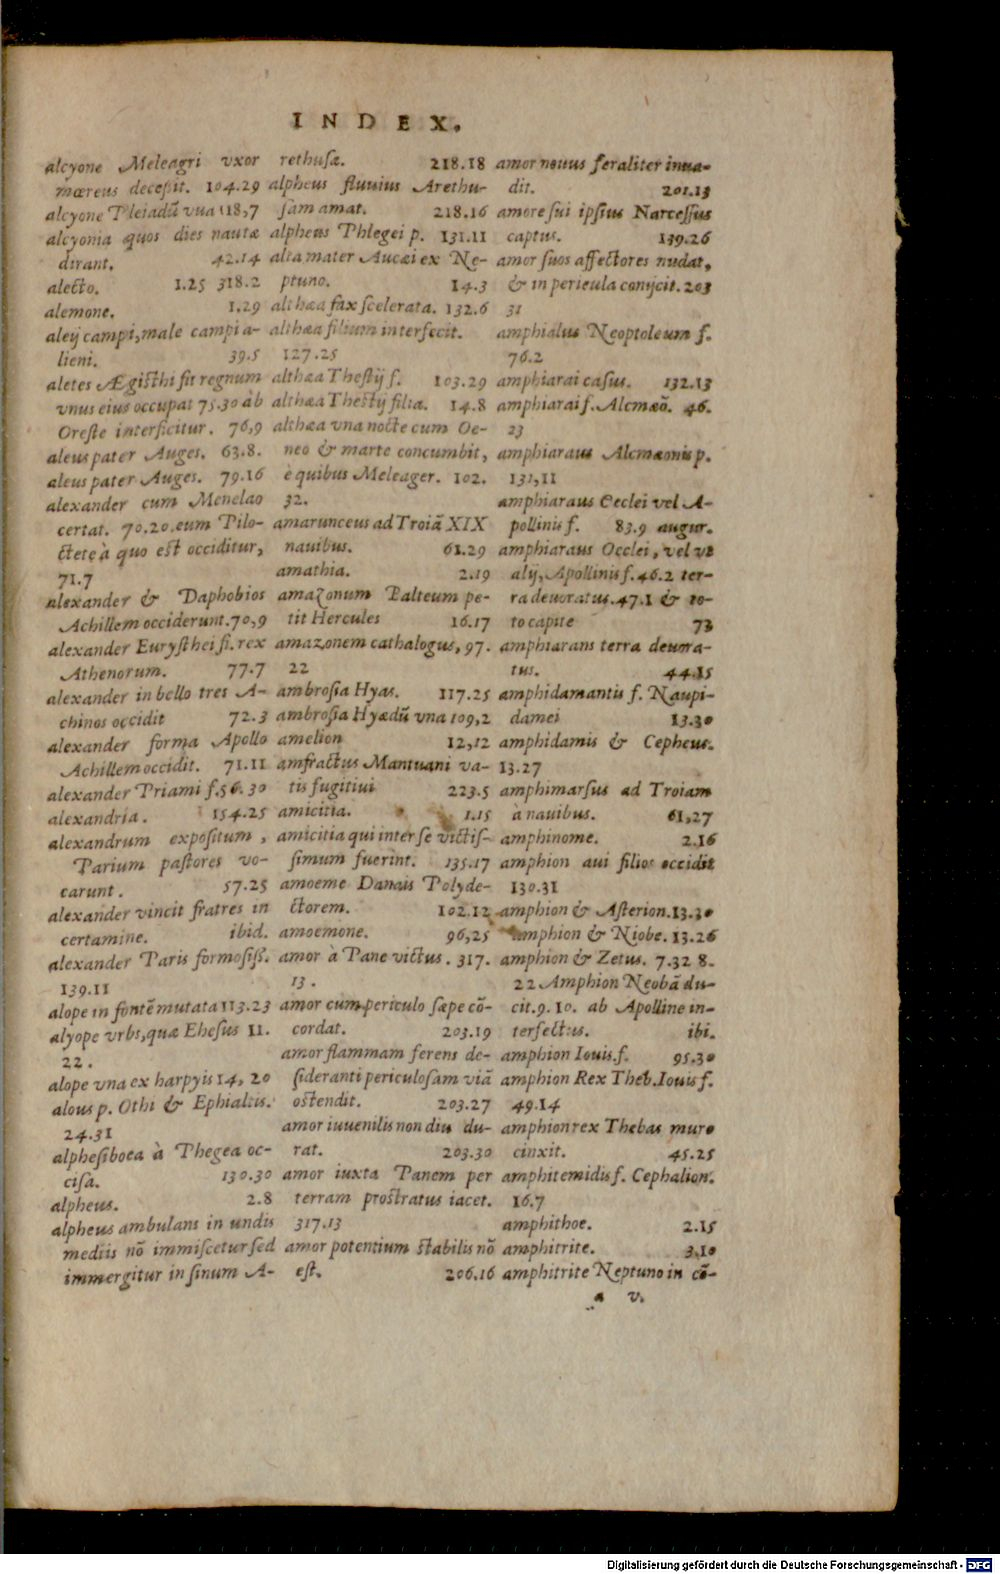 INDEX.
alcyone Meleagri vxor
mœreus deceſsit. 104.29
alcyone Pleiadũ vna 118,7
alcyonia quos dies nautæ
dirant. 42.14
alecto. 1.25 318.2
alemone. 1.29
aleÿ campi, male campi a-
lieni. 39.5
aletes Ægiſthi fit regnum
vnus eius occupat 75.30 ab
Oreſte interficitur. 76,9
aleus pater Auges. 63.8.
aleus pater Auges. 79.16
alexander cum Menelao
certat. 70.20. eum Pilo-
ctete à quo eſt occiditur,
71.7
alexander & Daphobios
Achillem occiderunt. 70,9
alexander Euryſthei fi. rex
Athenorum. 77.7
alexander in bello tres A-
chinos occidit 72.3
alexander forma Apollo
Achillem occidit. 71.11
alexander Priami f. 56.30
alexandria. 154.25
alexandrum expoſitum,
Parium paſtores vo-
carunt. 57.25
alexander vincit fratres in
certamine. ibid.
alexander Paris formoſiſſ.
139.11
alope in fontẽ mutata 113.23
alyope vrbs, quæ Eheſus 11.
22.
alope vna ex harpyis 14, 20
alous p. Othi & Ephialtis.
24.31
alpheſiboea à Phegea oc-
ciſa. 130.30
alpheus. 2.8
alpheus ambulans in undis
mediis nõ immiſcetur ſed
immergitur in ſinum A-
rethuſæ. 218.18
alpheus fluuius Arethu-
ſam amat. 218.16
alpheus Phlegei p. 131.11
alta mater Aucæi ex Ne-
ptuno. 14.3
althæa fax ſcelerata. 132.6
althæa filium interfecit.
127.25
althæa Theſtÿ f. 103.29
althæa Theſtÿ filia. 14.8
althæa vna nocte cum Oe-
neo & marte concumbit,
è quibus Meleager. 102.
32.
amarunceus ad Troiã XIX
nauibus. 61.29
amathia. 2.19
amazonum Palteum pe-
tit Hercules 16.17
amazonem cathalogus, 97.
22
ambroſia Hyas. 117.25
ambroſia Hyædũ vna 109,2
amelion 12,12
amfractus Mantuani va-
tis fugitiui 223.5
amicitia. 1.15
amicitia qui inter ſe victiſ-
ſimum fuerint. 135.17
amoeme Danais Polyde-
ctorem. 102.12
amoemone. 96,25
amor à Pane victus. 317.
13.
amor cum periculo ſæpe cõ-
cordat. 203.19
amor flammam ferens de-
ſideranti periculoſam viã
oſtendit. 203.27
amor iuuenilis non diu du-
rat. 203.30
amor iuxta Panem per
terram proſtratus iacet.
317.13
amor potentium ſtabilis nõ
eſt. 206.16
amor nouus feraliter inua-
dit. 201.13
amore ſui ipſius Narceſſus
captus. 139.26
amor ſuos affectores nudat,
& in pericula conijcit. 203
31
amphialus Neoptoleum f.
76.2
amphiarai caſus. 132.13
amphiarai f. Alcmæõ. 46.
23
amphiaraus Alcmæonis p.
131,11
amphiaraus Eeclei vel A-
pollinis f. 83.9 augur.
amphiaraus Occlei, vel vt
alÿ, Apollinis f. 46.2 ter-
ra deuoratus. 47.1 & to-
to capite 73
amphiarans terra deuora-
tus. 44.15
amphidamantis f. Naupi-
damei 13.30
amphidamis & Cepheus.
13.27
amphimarſus ad Troiam
à nauibus. 61,27
amphinome. 2.16
amphion aui filios occidit
130.31
amphion & Aſterion. 13.30
amphion & Niobe. 13.26
amphion & Zetus. 7.32 8.
22 Amphion Neobã du-
cit. 9. 10. ab Apolline in-
terfectus. ibi.
amphion Iouis. f. 95.30
amphion Rex Theb. Iouis f.
49.14
amphion rex Thebas muro
cinxit. 45.25
amphitemidis f. Cephalion.
16.7
amphithoe. 2.15
amphitrite. 3.10
amphitrite Neptuno in cõ-
a v.
Digitalisierung gefördert durch die Deutsche Forschungsgemeinschaft - DFG